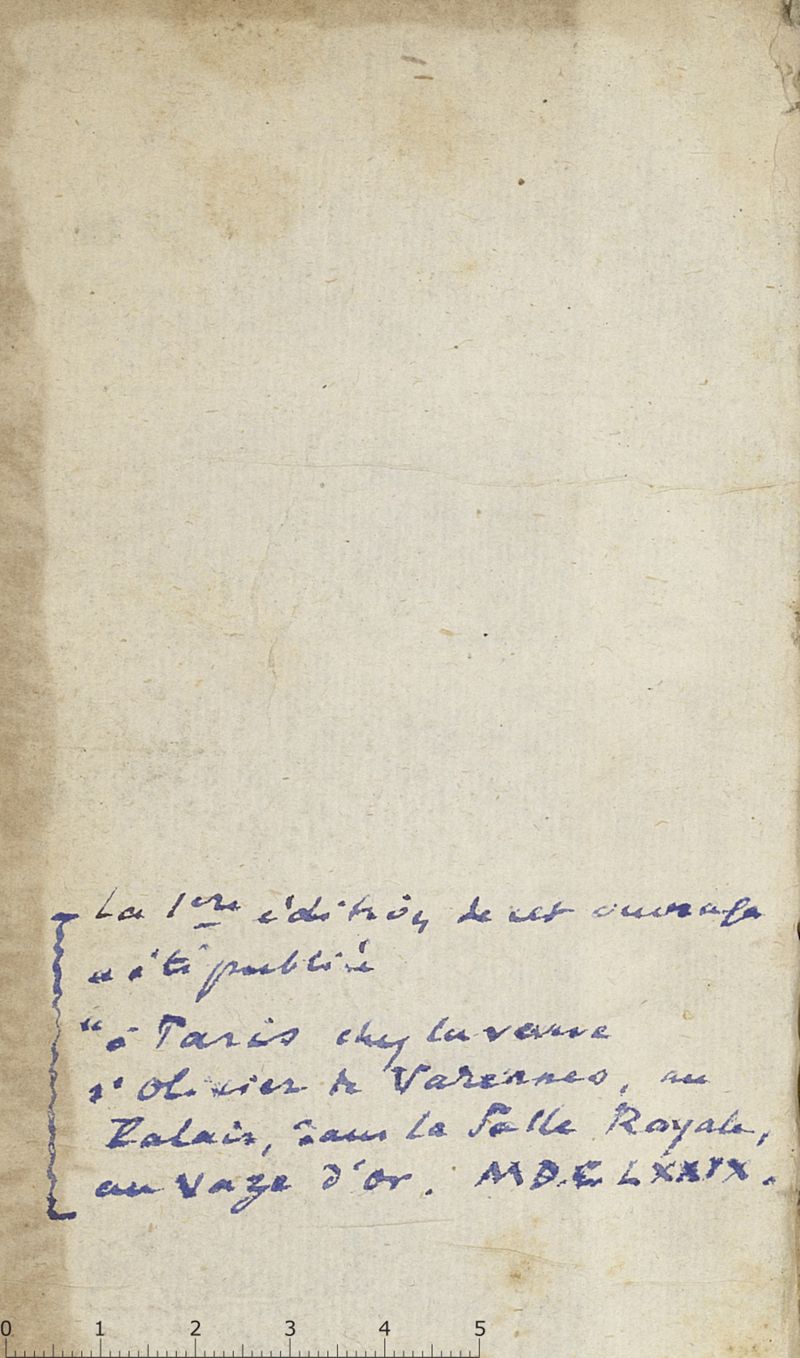 La 1ère édition de cet ouvrage
a été publié
"à Paris chez la veuve
d'Olivier de Varennes, au
Palais, dans la Salle Royale,
au Vaze d'or. MDCLXXIX.
0 1 2 3 4 5